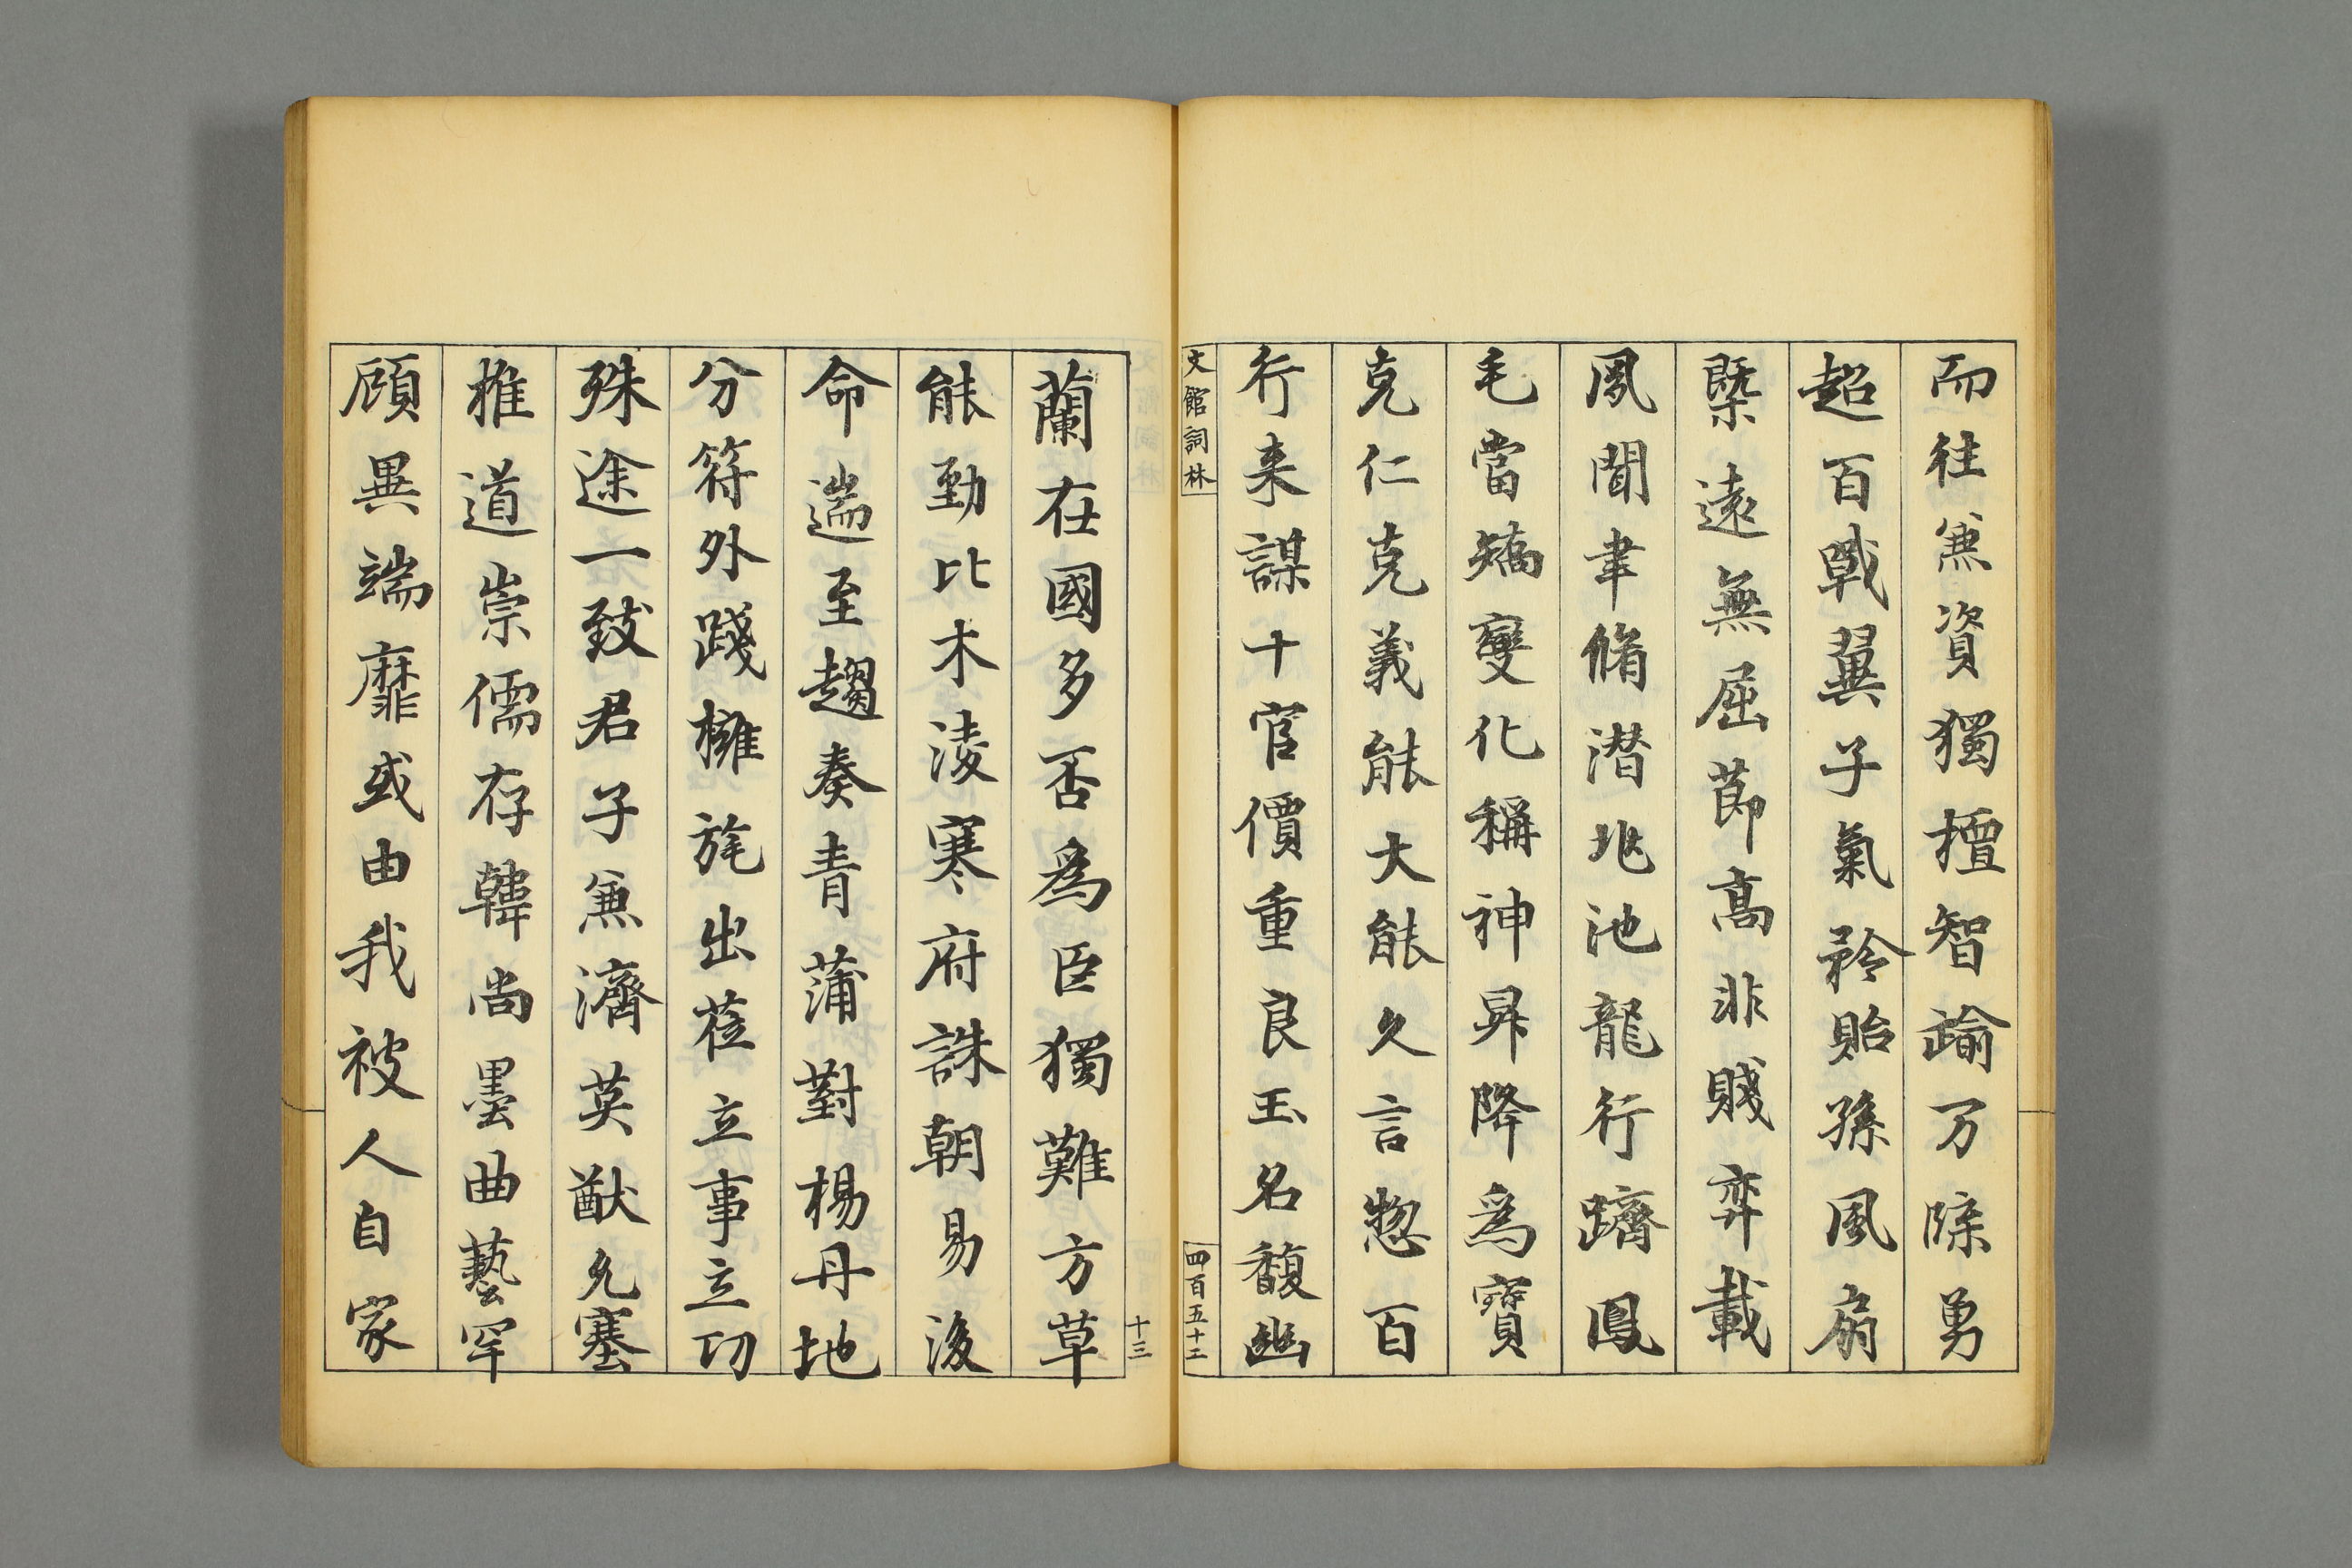 而往兼資獨擅智踰万隙勇
超百戰翼子氣矜貽孫風扇
槩遠無屈莭髙非賤弈載
風聞聿脩潜兆池龍行躋鳳
毛當矯變化稱神昇降爲寶
克仁克義能大能久言惣百
行来謀十官價重良玉名馥幽
文館詞林
四百五十二
十三
蘭在國多否爲臣獨難方草
能勁比木淩寒府誅朝易後
命遄至趨奏青蒲對楊丹地
分符外踐擁旄出莅立事立功
殊途一致君子兼濟英猷允塞
推道崇儒存韓尚墨曲藝罕
顧異端靡或由我被人自家